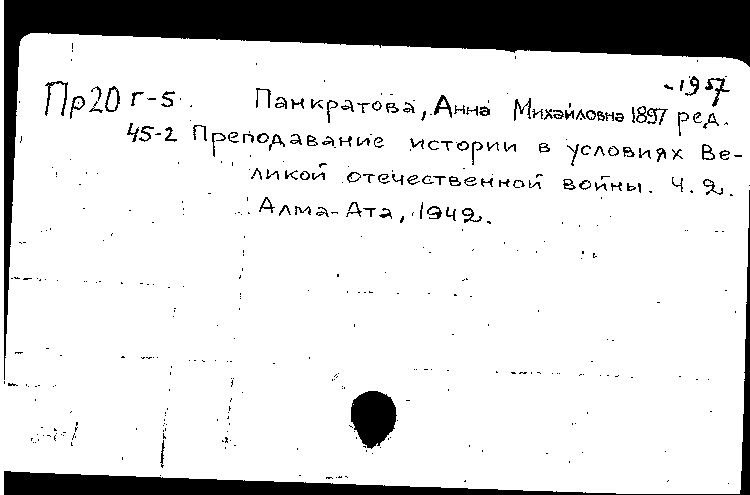 -1957
Пр20 г-5 Панкратова, Анна Михайловна 1897 ред.
45-2 Преподавание истории в условиях Ве-
ликой отечественной войны. Ч. 2.
Алма-Ата, 1942.